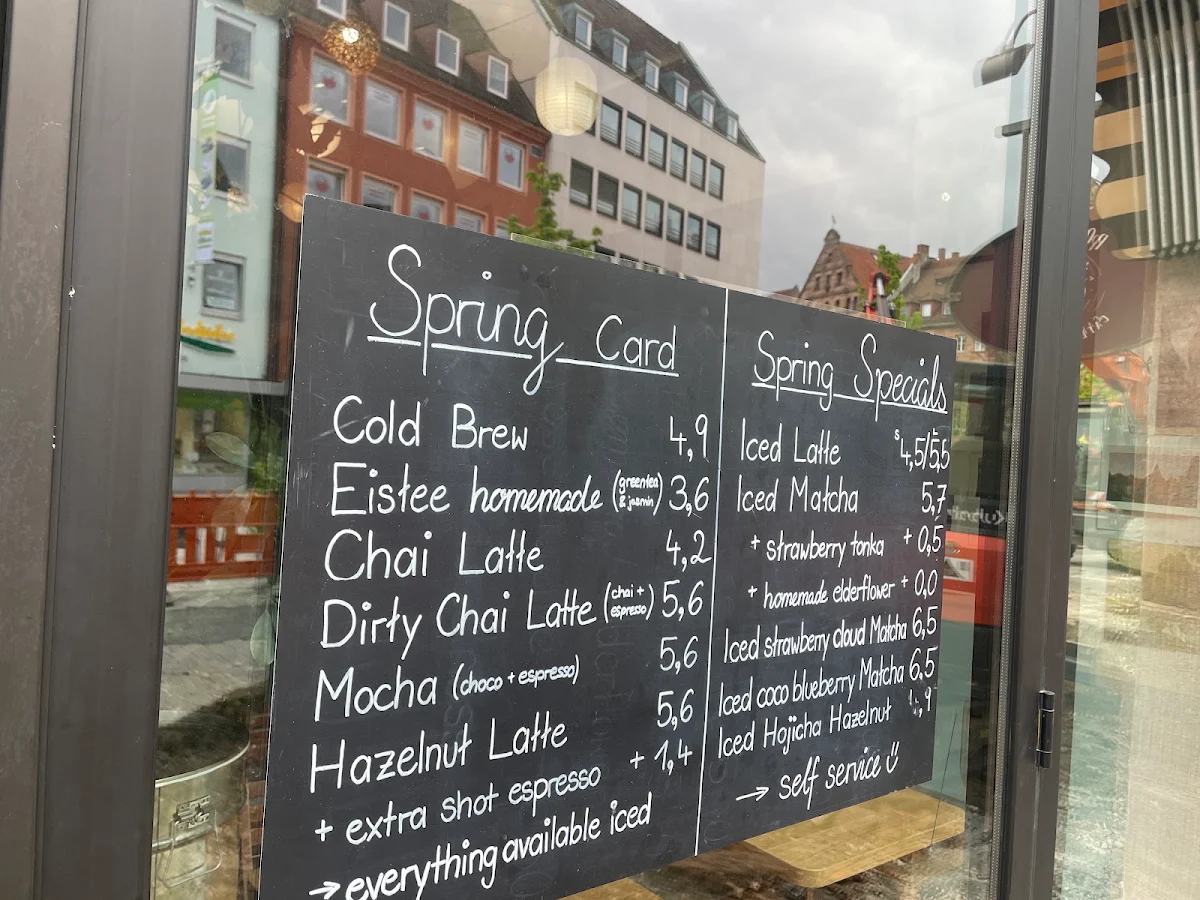 Spring Card
Cold Brew 4,9
Eistee homemade (greentea & jasmin) 3,6
Chai Latte 4,2
Dirty Chai Latte (chai + espresso) 5,6
Mocha (choco + espresso) 5,6
Hazelnut Latte 5,6
+ extra shot espresso + 1,4
→ everything available iced
Spring Specials
Iced Latte s4,5/5,5
Iced Matcha 5,7
+ strawberry tonka + 0,5
+ homemade elderflower + 0,0
Iced strawberry cloud Matcha 6,5
Iced coco blueberry Matcha 6,5
Iced Hojicha Hazelnut
→ self service